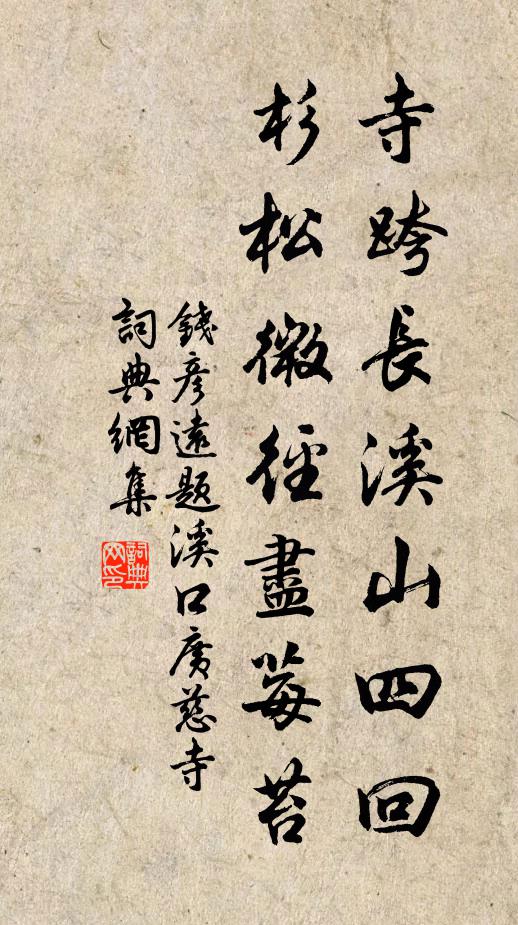 寺跨長溪山四回
杉松微徑盡莓苔
錢彥遠題溪口廣慈寺
詞典網集
詞典網印